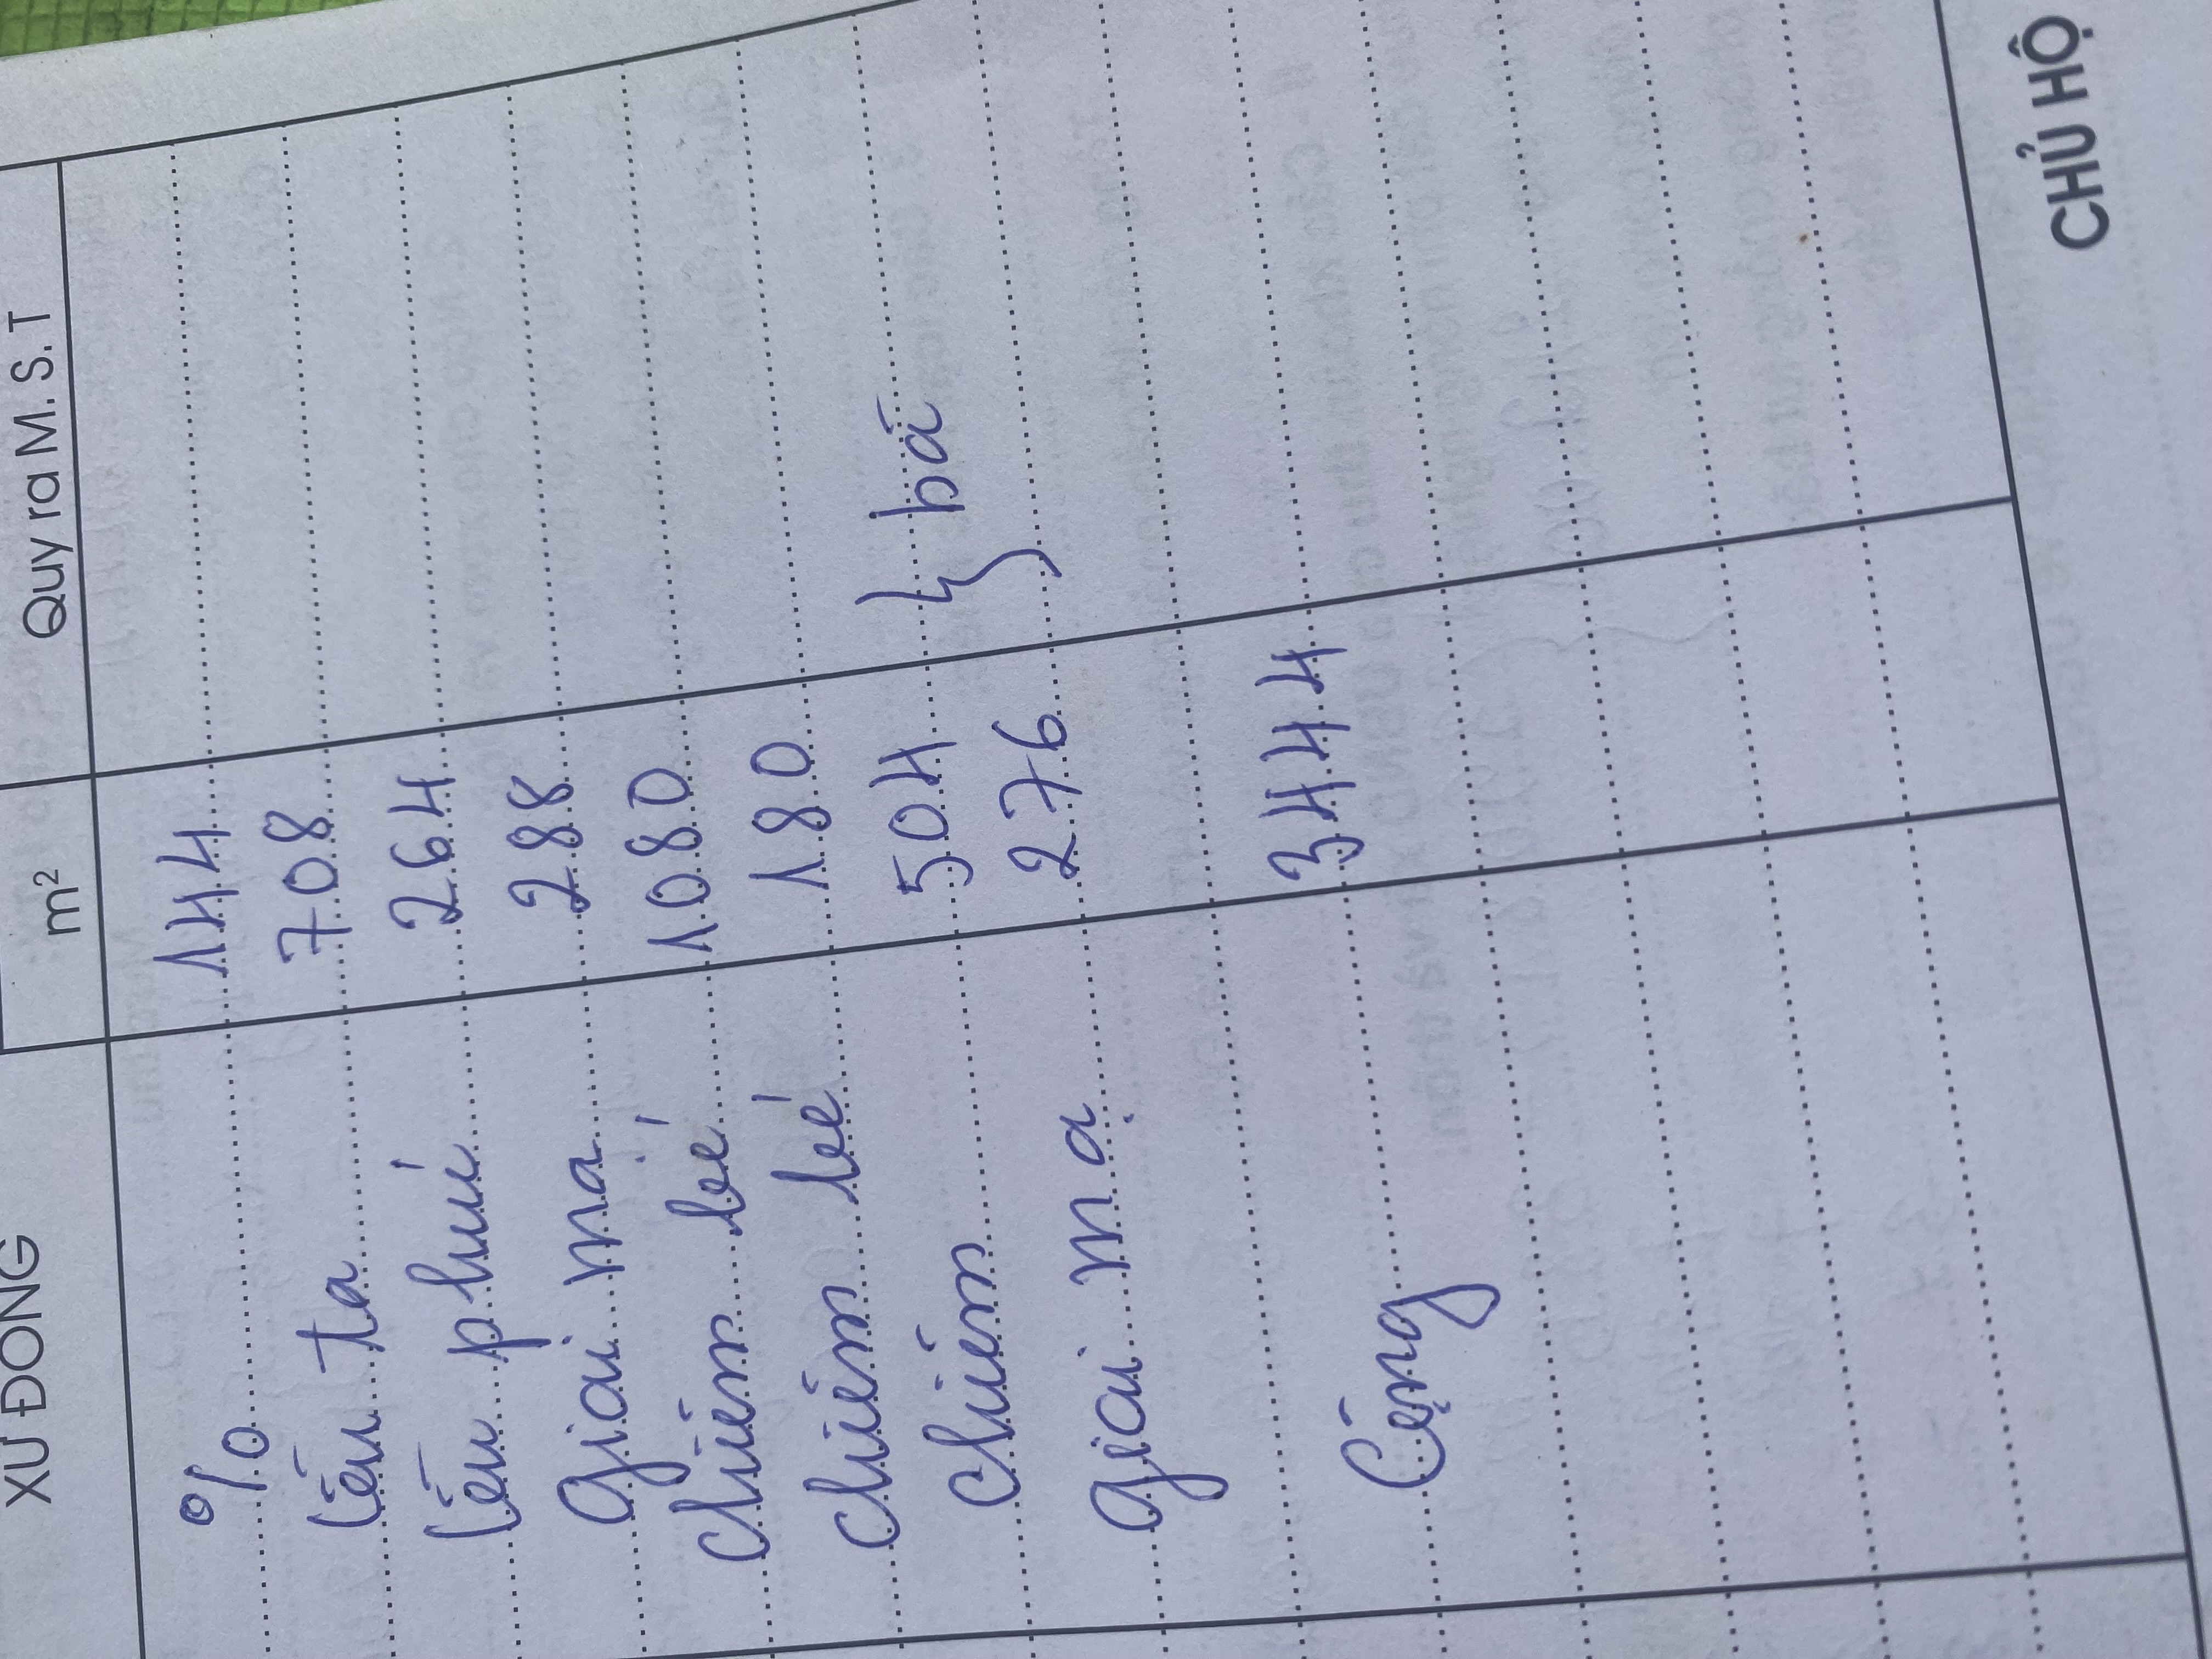 XỨ ĐỒNG m² Quy ra M.S.T
% 144
Lều ta 708
Lều phú 264
Giai mạ 288
Chiếm bé 1080
Chiếm bé 180
Chiếm 504 } bá
Giai mạ 276
Cộng 3444
CHỦ HỘ